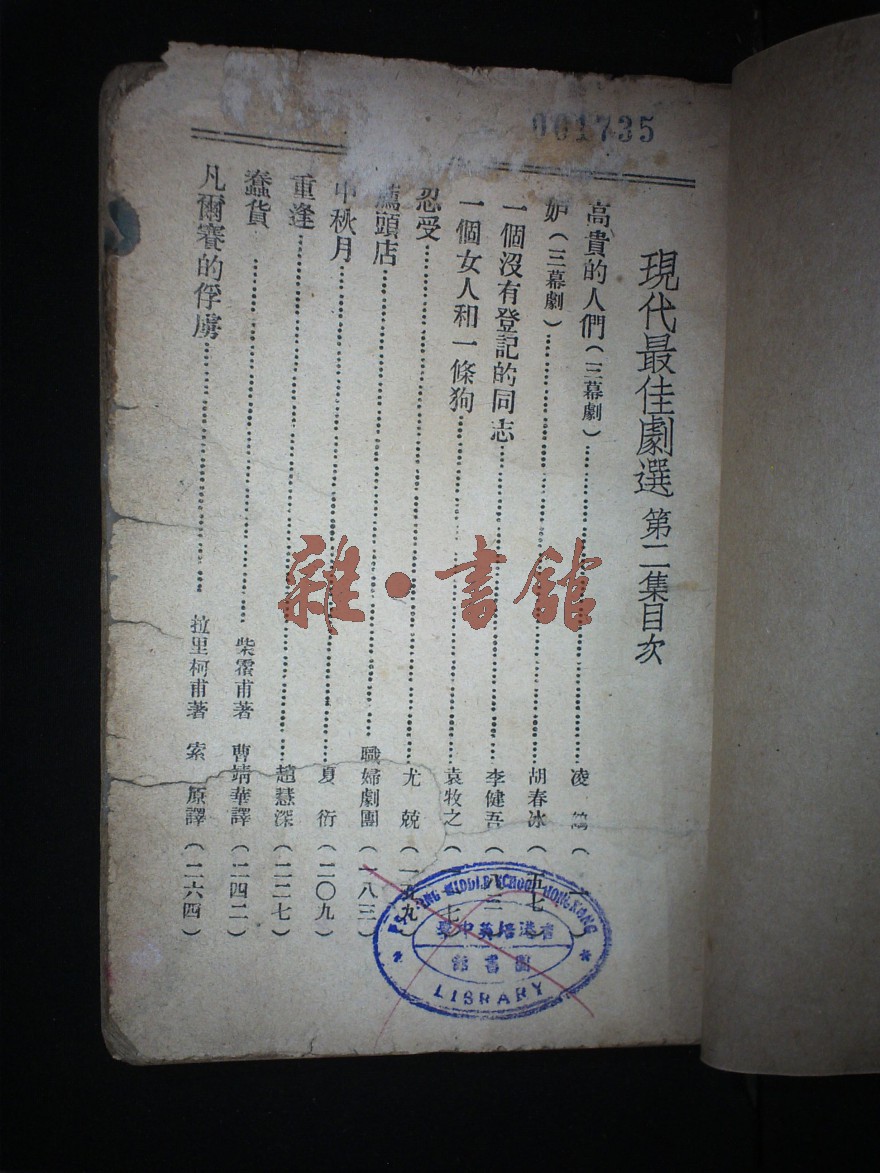 001735
現代最佳劇選 第二集目次
高貴的人們(三幕劇)……凌
妒(三幕劇)……胡春冰(五七)
一個沒有登記的同志……李健吾(八三)
一個女人和一條狗……袁牧之
忍受……尤兢(一五九)
薦頭店……職婦劇團(一八三)
中秋月……夏衍(二〇九)
重逢……趙慧深(二二七)
蠢貨……柴霍甫著 曹靖華譯(二四二)
凡爾賽的俘虜……拉里柯甫著 索原譯(二六四)
雜·書館
MIDDLE SCHOOL HONGKONG
香港培英中學
圖書館
LIBRARY